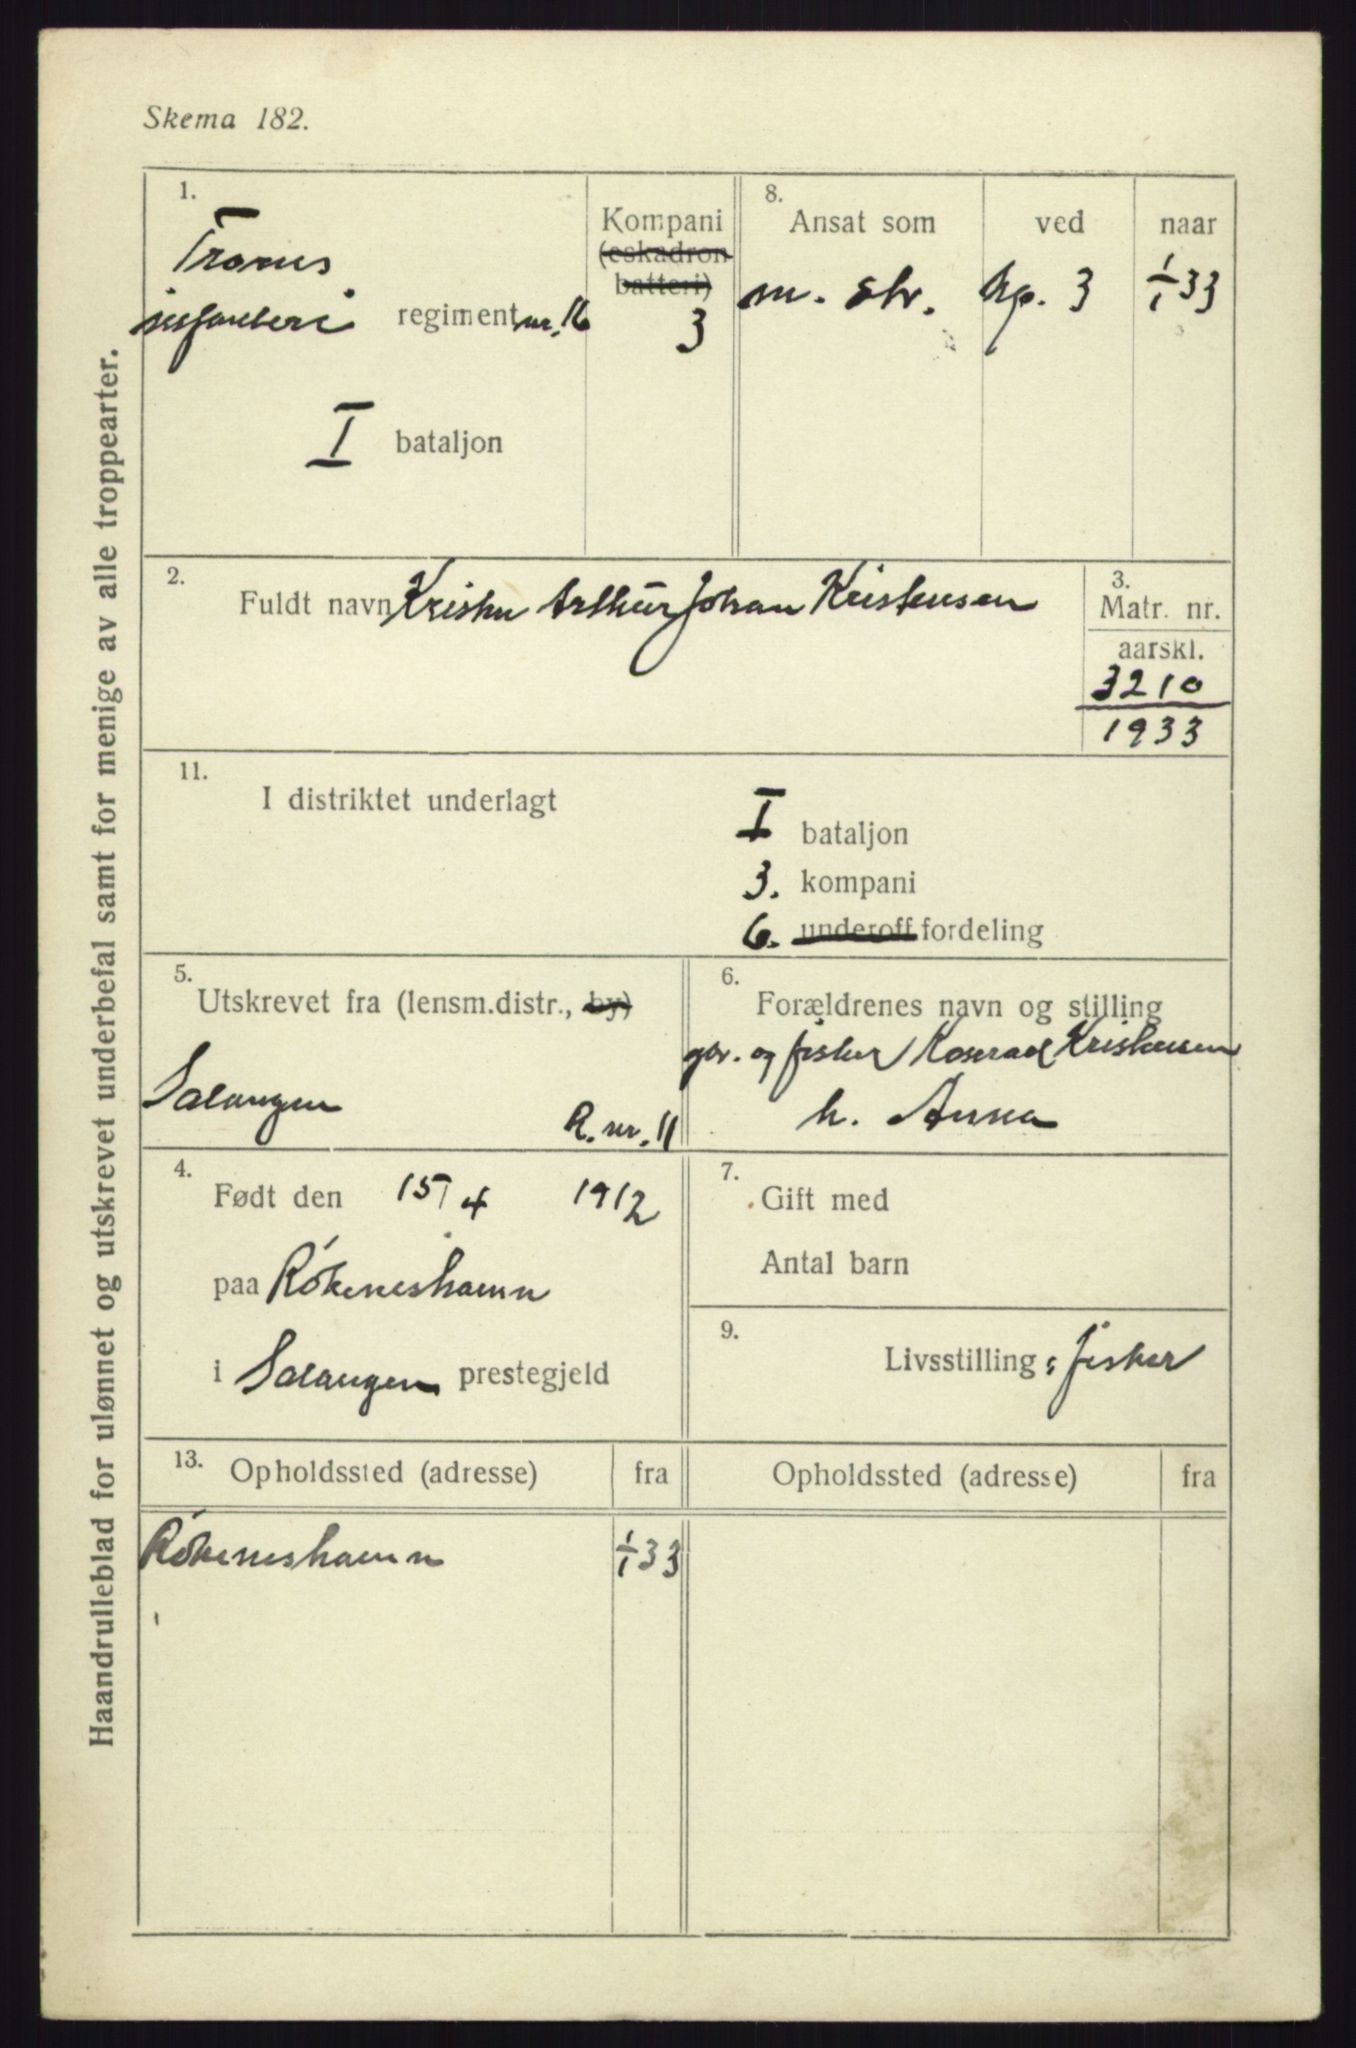 Skema 182.
Haandrulleblad for ulønnet og utskrevet underbefal samt for menige av alle troppearter.
1.
Troms
infanteri regiment nr. 16
I bataljon
Kompani
(eskadron
batteri)
3
8.
Ansat som ved naar
m. str. kp. 3 1/1 33
2.
Fuldt navn Kristen Arthur Johan Kristensen
3.
Matr. nr.
aarskl.
3210
1933
11.
I distriktet underlagt
I bataljon
3. kompani
6. underoff fordeling
5.
Utskrevet fra (lensm.distr., by)
Salangen
R. nr. 11
6.
Forældrenes navn og stilling
gbr. og fisker Konrad Kristensen
h. Anna
4.
Født den 15/4 1912
paa Røkeneshamn
i Salangen prestegjeld
7.
Gift med
Antal barn
9.
Livsstilling: fisker
13.
Opholdssted (adresse) fra Opholdssted (adresse) fra
Røkeneshamn 1/1 33